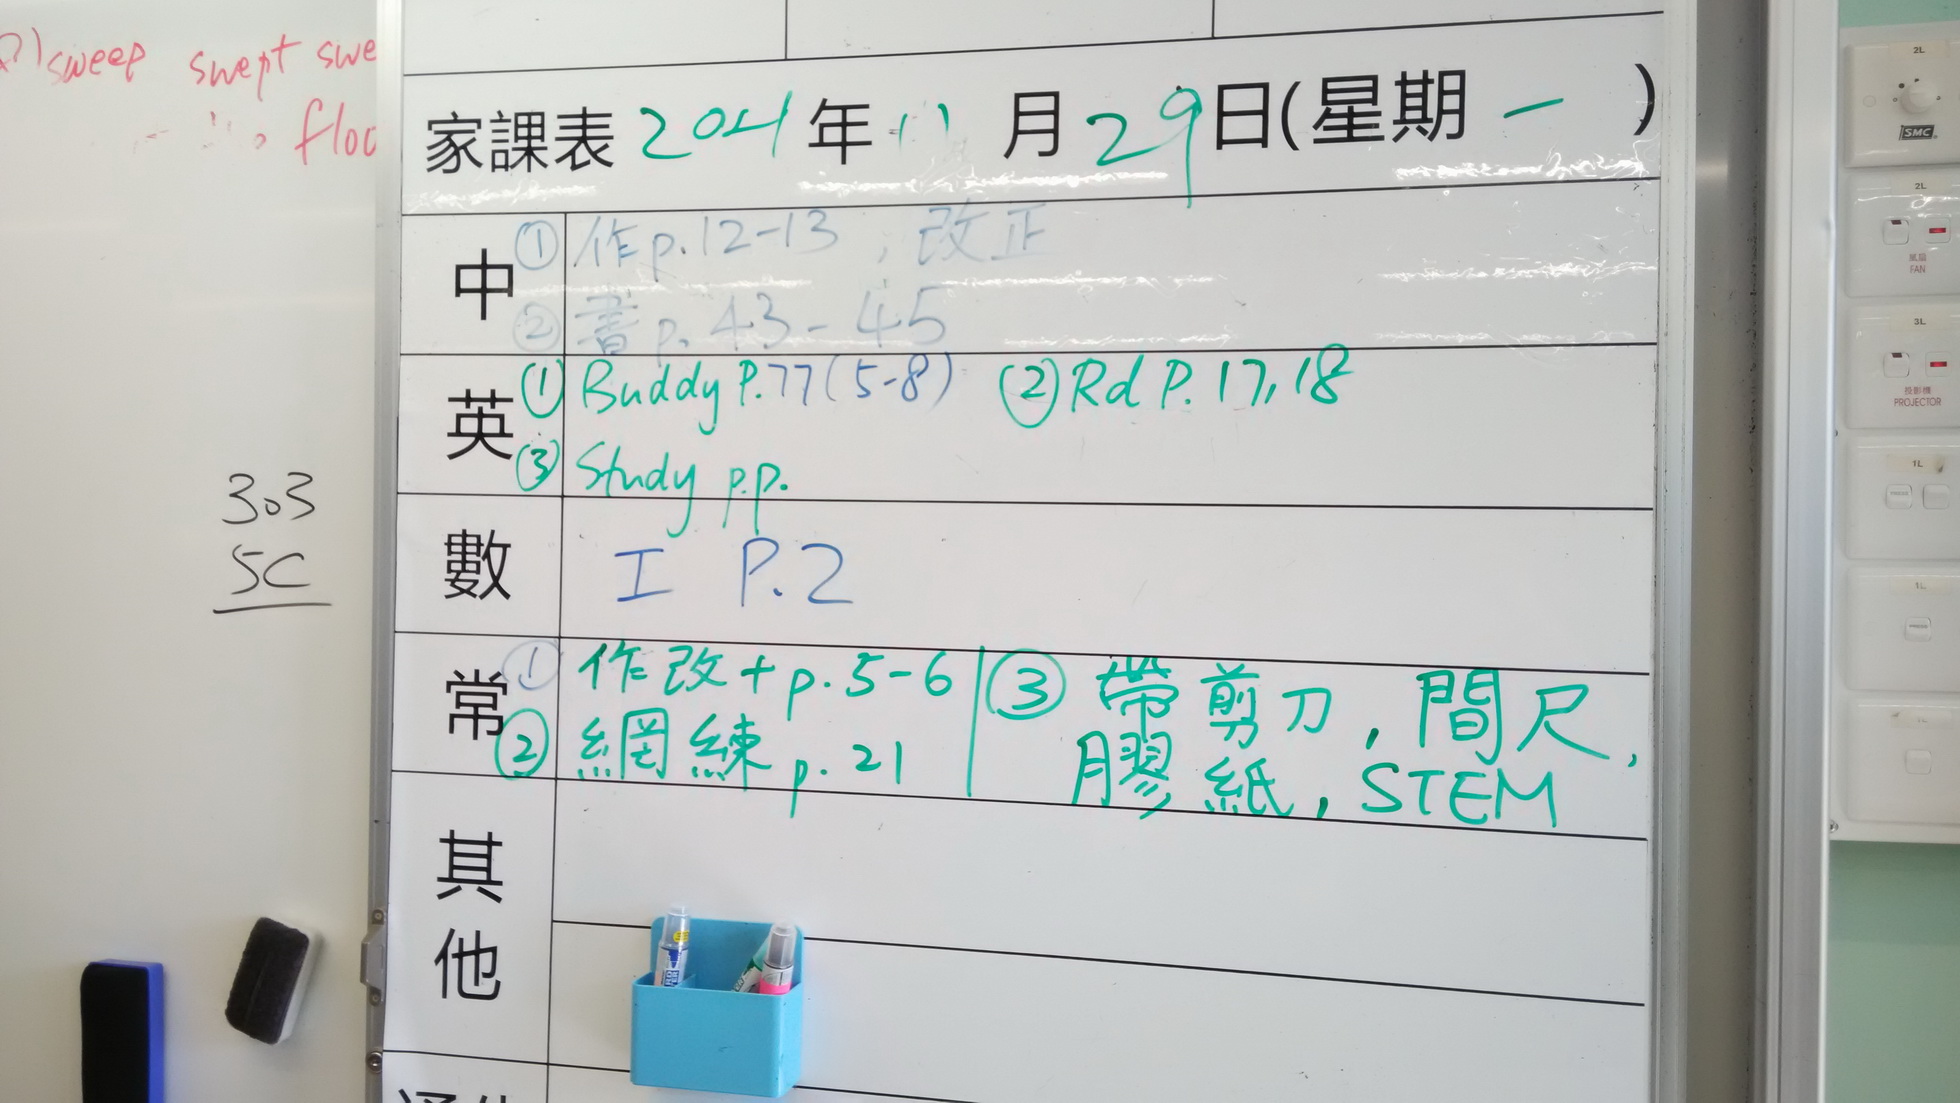 sweep swept swe
floo
303
5C
家課表 2021年 11月29日(星期一)
中 ① 作p.12-13，改正
② 書p.43-45
英 ① Buddy P.77(5-8) ② Rd P.17,18
③ Study p.p.
數 工 P.2
常 ① 作改+p.5-6
② 網練p.21
③ 帶剪刀，間尺，
膠紙，STEM
其他
2L
SMC
2L
風扇
FAN
3L
投影機
PROJECTOR
1L
1L